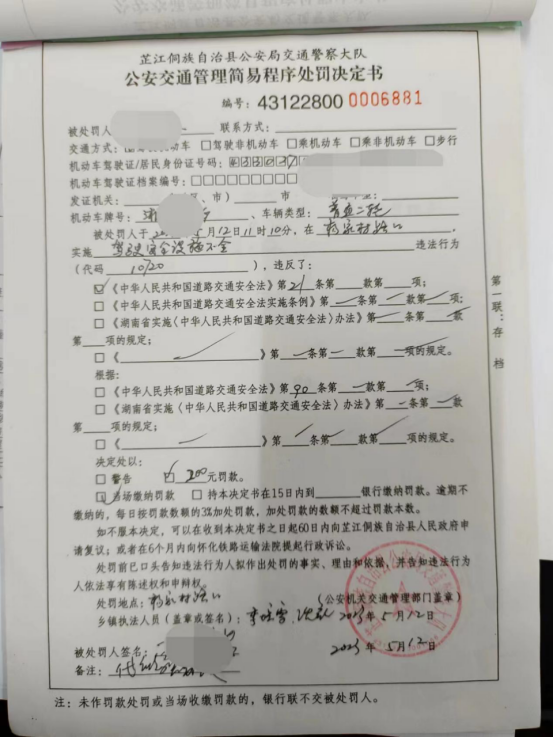 芷江侗族自治县公安局交通警察大队
公安交通管理简易程序处罚决定书
编号：43122800 0006881
被处罚人 联系方式：
交通方式：□驾驶机动车 □驾驶非机动车 □乘机动车 □乘非机动车 □步行
机动车驾驶证/居民身份证号码：
机动车驾驶证档案编号：□□□□□□□□□
发证机关： 市）市
机动车牌号：湘 、车辆类型：普通二轮
被处罚人于 5月12日11时10分，在杨家村路口
实施驾驶安全设施不全违法行为
（代码 ），违反了：
☑《中华人民共和国道路交通安全法》第21条第 款第 项；
□《中华人民共和国道路交通安全法实施条例》第 条第 款第 项；
□《湖南省实施〈中华人民共和国道路交通安全法〉办法》第 条第 款
第 项的规定；
□《 》第 条第 款第 项的规定。
根据：
□《中华人民共和国道路交通安全法》第90条第 款第 项；
□《湖南省实施〈中华人民共和国道路交通安全法〉办法》第 条第 款
第 项的规定；
□《 》第 条第 款第 项的规定。
决定处以：
□ 警告 ☑ 200元罚款。
☑当场缴纳罚款 □ 持本决定书在15日内到 银行缴纳罚款。逾期不
缴纳的，每日按罚款数额的3%加处罚款，加处罚款的数额不超过罚款本数。
如不服本决定，可以在收到本决定书之日起60日内向芷江侗族自治县人民政府申
请复议；或者在6个月内向怀化铁路运输法院提起行政诉讼。
处罚前已口头告知违法行为人拟作出处罚的事实、理由和依据，并告知违法行为
人依法享有陈述权和申辩权。
处罚地点：杨家村路口 （公安机关交通管理部门盖章）
乡镇执法人员（盖章或签名）： 2023年5月12日
被处罚人签名： 2023年5月12日
备注：
注：未作罚款处罚或当场收缴罚款的，银行联不交被处罚人。
第一联：存档